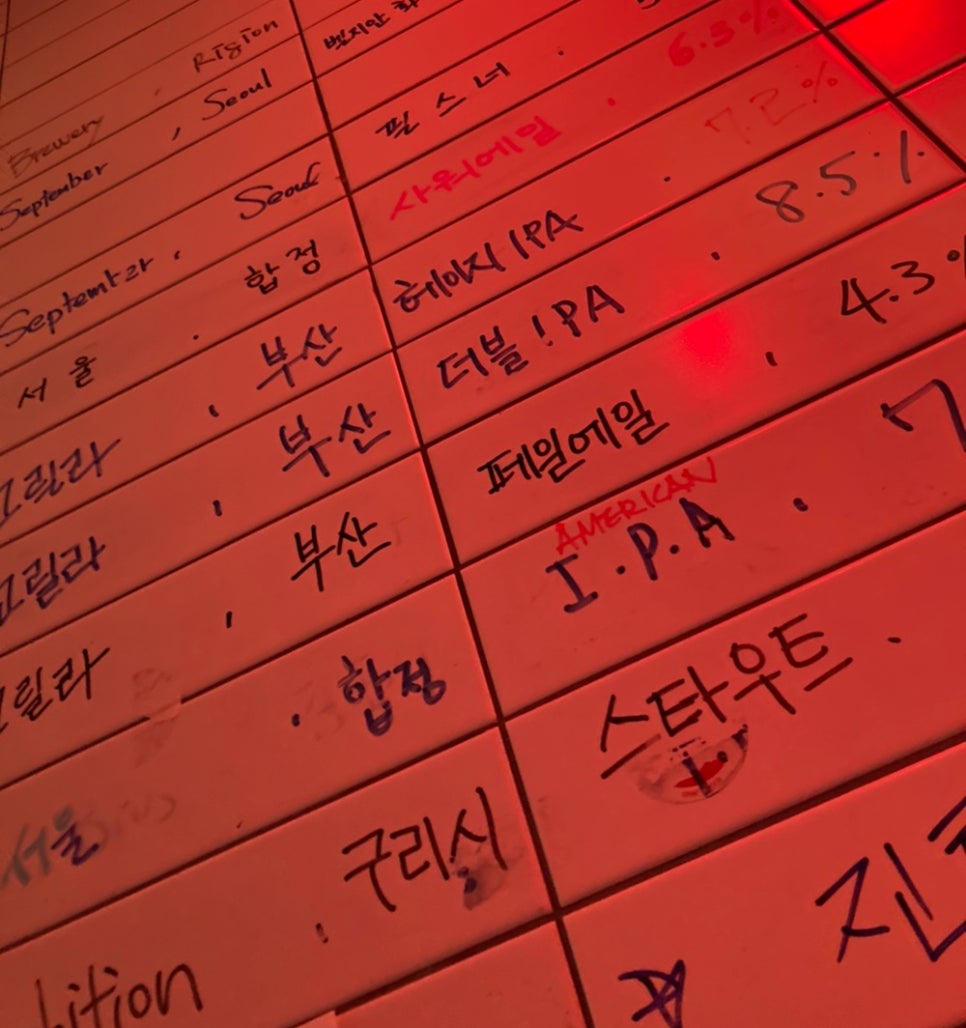 Brewery . Rigion
September , Seoul 벨지안 화
Septemt2r . Seoul 필스너 .
서울 . 합정 사워에일 . 6.5%
고릴라 , 부산 헤이지 IPA . 7.2%
고릴라 , 부산 더블 IPA . 8.5%
릴라 , 부산 페일에일 , 4.3%
서울 . 합정 AMERICAN I.P.A . 7
bition , 구리시 스타우트 .
진